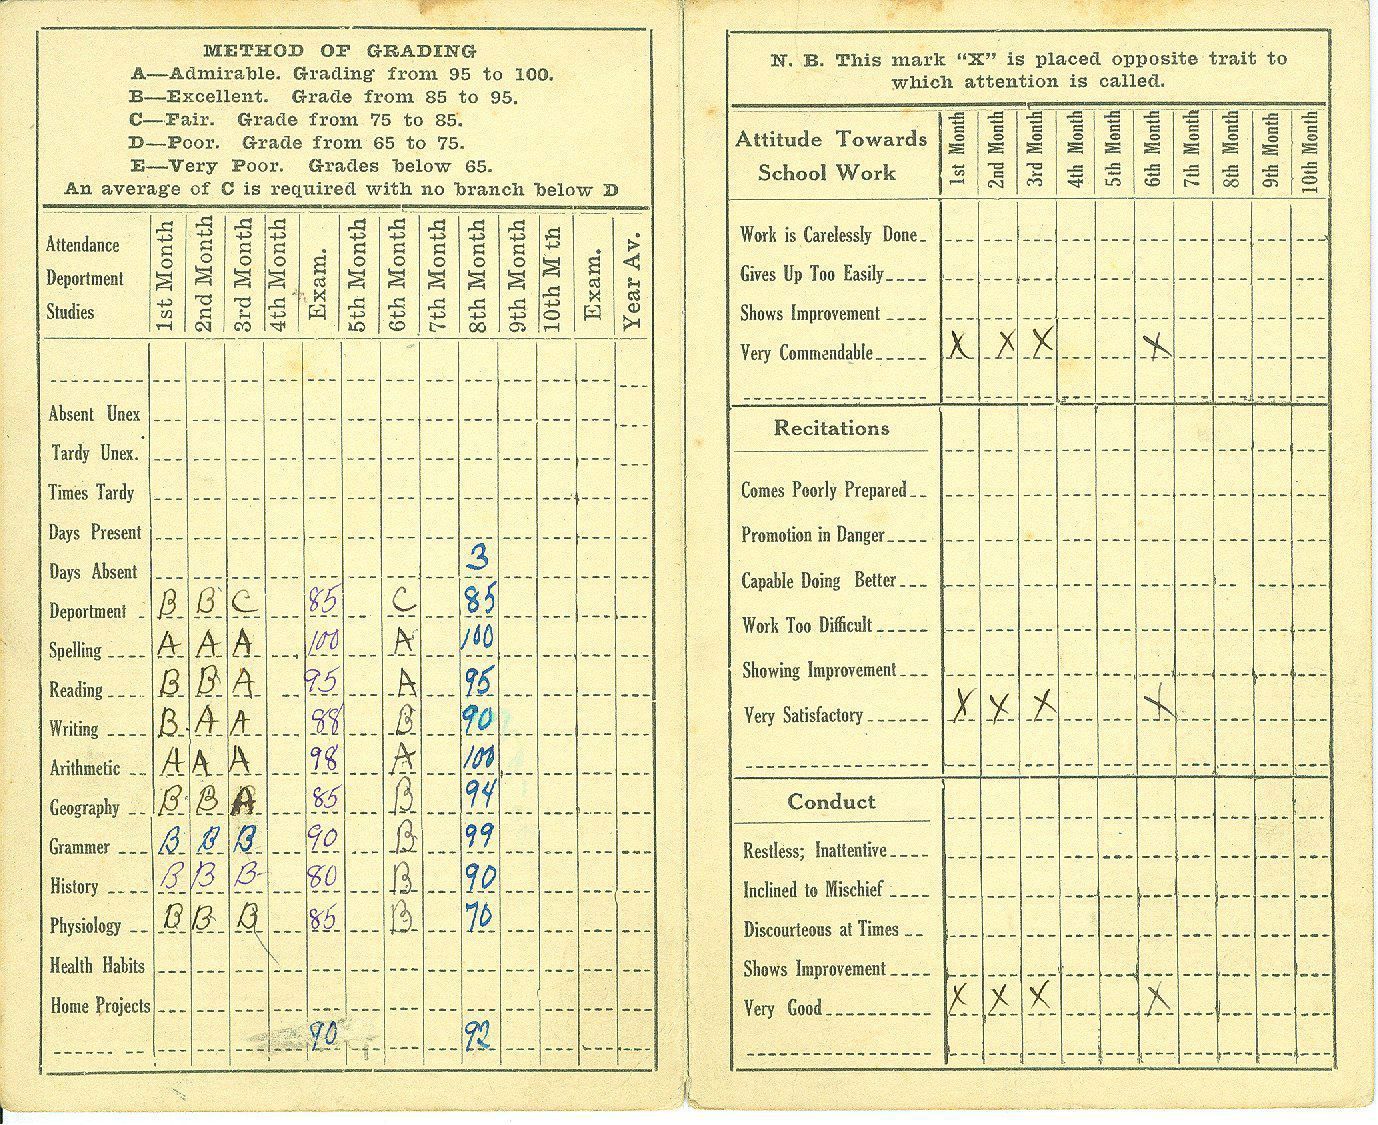 METHOD OF GRADING
A—Admirable. Grading from 95 to 100.
B—Excellent. Grade from 85 to 95.
C—Fair. Grade from 75 to 85.
D—Poor. Grade from 65 to 75.
E—Very Poor. Grades below 65.
An average of C is required with no branch below D
Attendance
Department
Studies
1st Month 2nd Month 3rd Month 4th Month Exam. 5th Month 6th Month 7th Month 8th Month 9th Month 10th M'th Exam. Year Av.
Absent Unex
Tardy Unex.
Times Tardy
Days Present
Days Absent 3
Department B B C 85 C 85
Spelling A A A 100 A 100
Reading B B A 95 A 95
Writing B A A 88 B 90
Arithmetic A A A 98 A 100
Geography B B A 85 B 94
Grammer B B B 90 B 99
History B B B 80 B 90
Physiology B B B 85 B 70
Health Habits
Home Projects
90 92
N. B. This mark "X" is placed opposite trait to
which attention is called.
Attitude Towards
School Work
1st Month 2nd Month 3rd Month 4th Month 5th Month 6th Month 7th Month 8th Month 9th Month 10th Month
Work is Carelessly Done
Gives Up Too Easily
Shows Improvement
Very Commendable X X X X
Recitations
Comes Poorly Prepared
Promotion in Danger
Capable Doing Better
Work Too Difficult
Showing Improvement
Very Satisfactory X X X X
Conduct
Restless; Inattentive
Inclined to Mischief
Discourteous at Times
Shows Improvement
Very Good X X X X